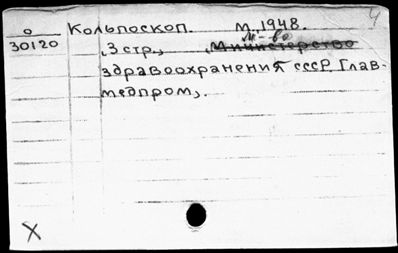 4
о Кольпоскоп. М. 1948.
30120
м-во
,3 стр., ,Министерство
здравоохранения СССР. Глав-
медпром,.
X